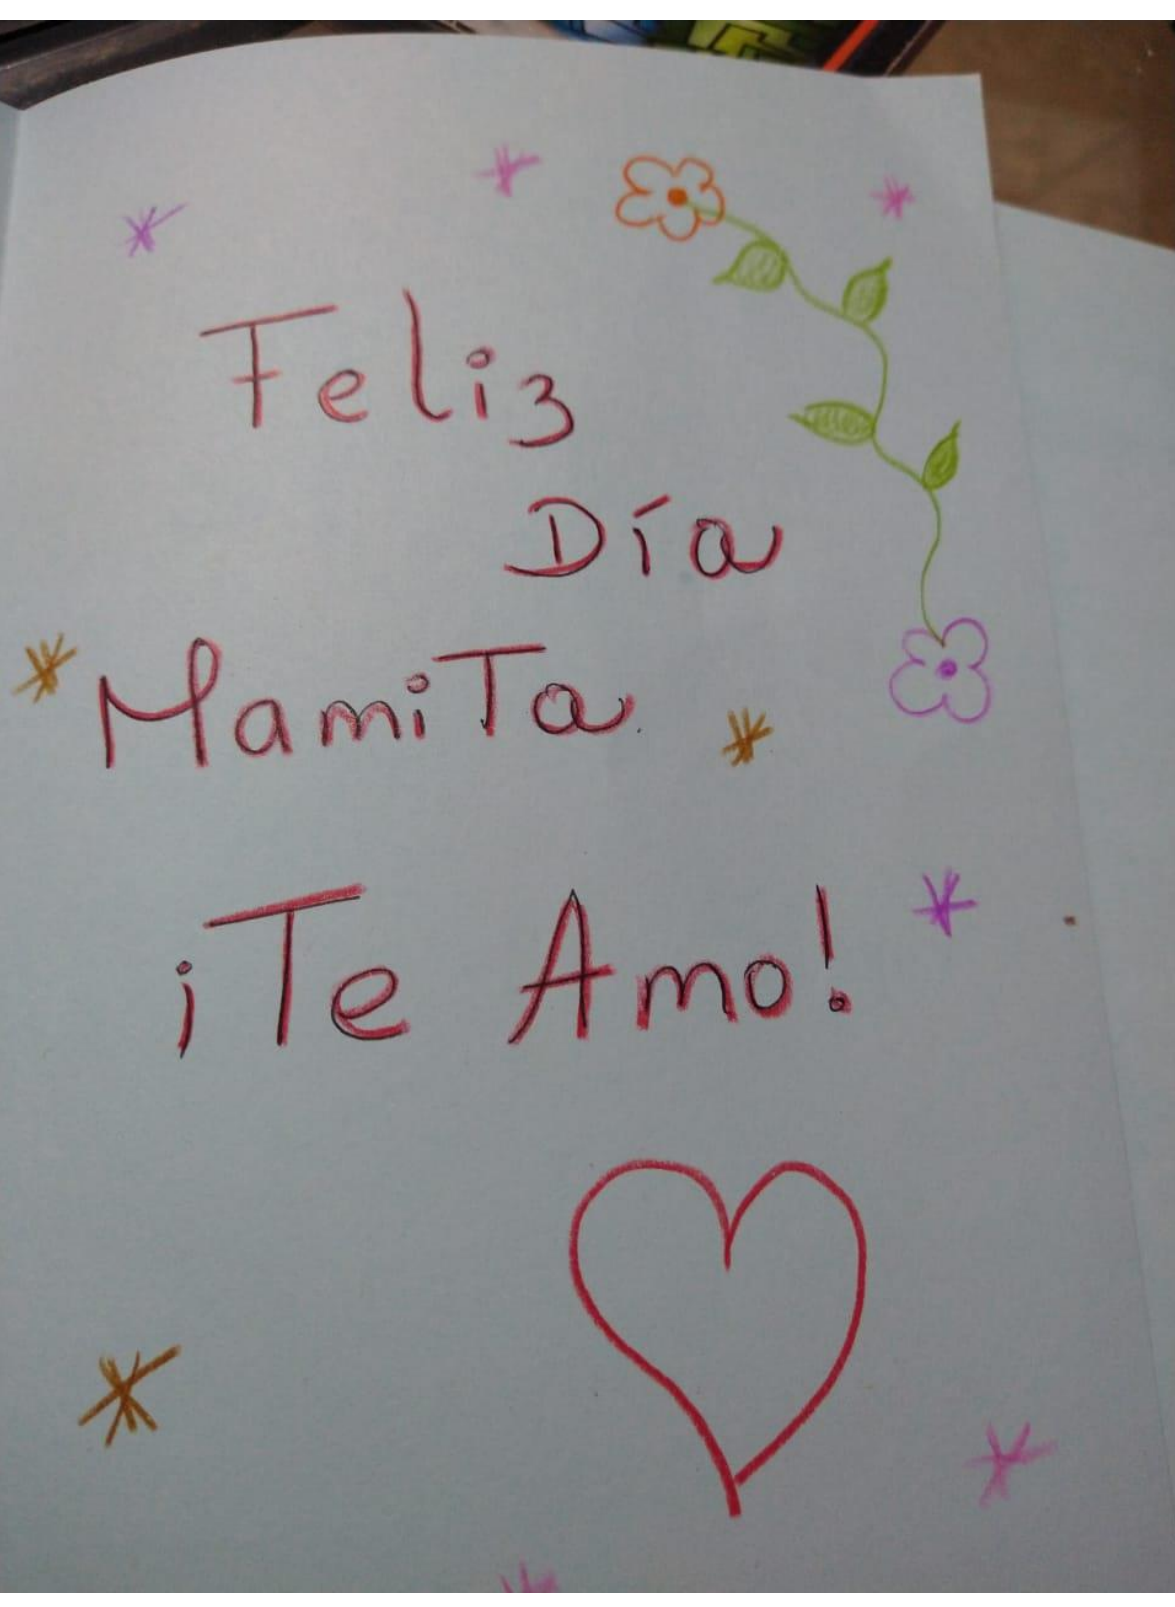 Feliz
Día
MamiTa
¡Te Amo!